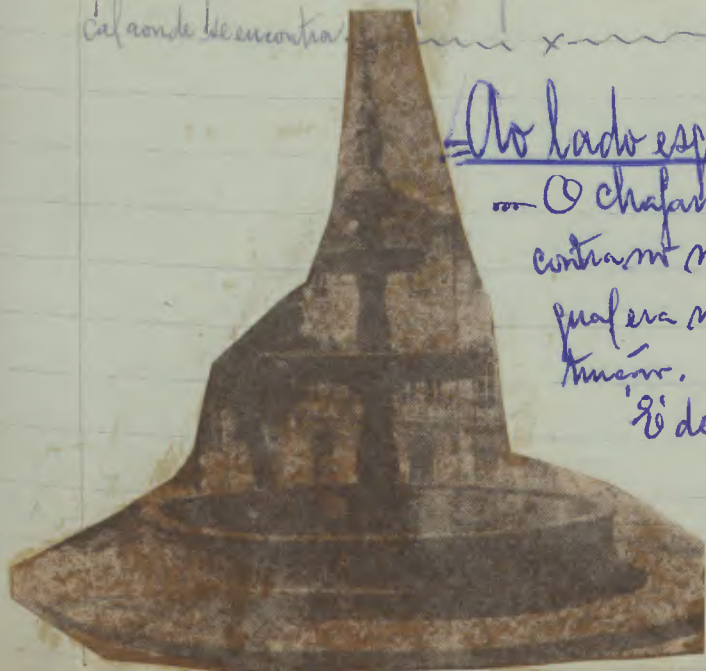 cal aonde se encontra x
Ao lado esq
O chafar
contra no
qual era
É de